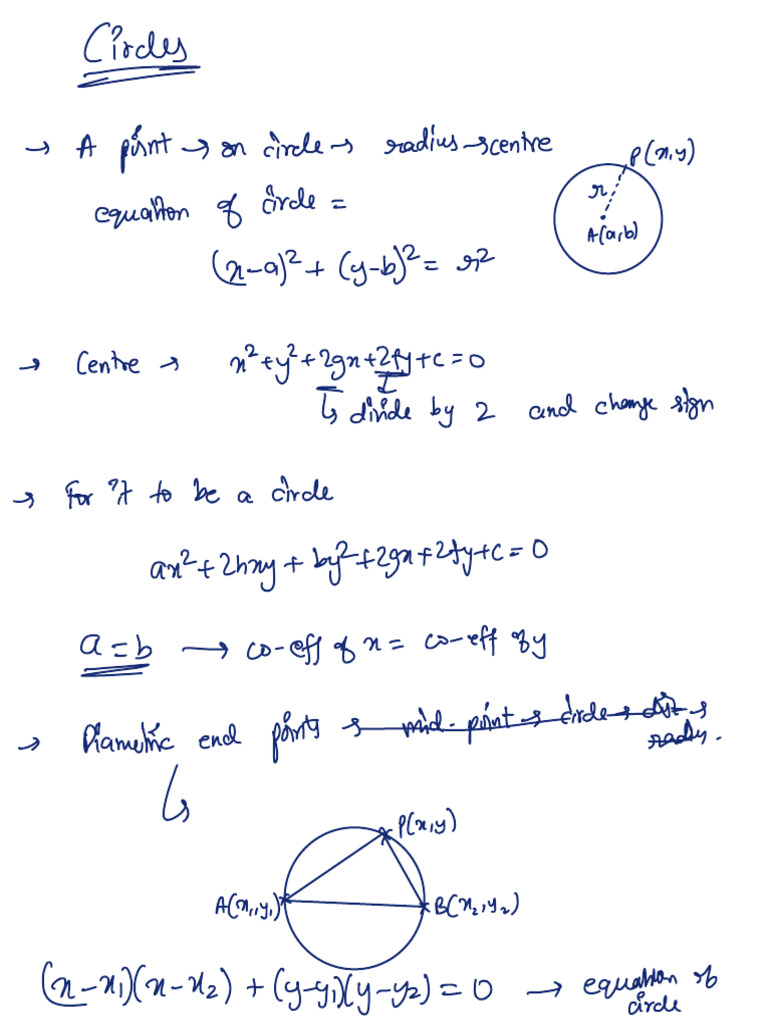 Circles
→ A point → on circle → radius → centre
P(x,y)
r
A(a,b)
equation of circle =
(x-a)² + (y-b)² = r²
→ Centre → x² + y² + 2gx + 2fy + c = 0
↳ divide by 2 and change sign
→ For it to be a circle
ax² + 2hxy + by² + 2gx + 2fy + c = 0
a = b → co-eff of x = co-eff of y
→ Diametric end points → mid-point → circle → dist →
radius.
↳
P(x,y)
A(x₁,y₁)
B(x₂,y₂)
(x-x₁)(x-x₂) + (y-y₁)(y-y₂) = 0 → equation of
circle